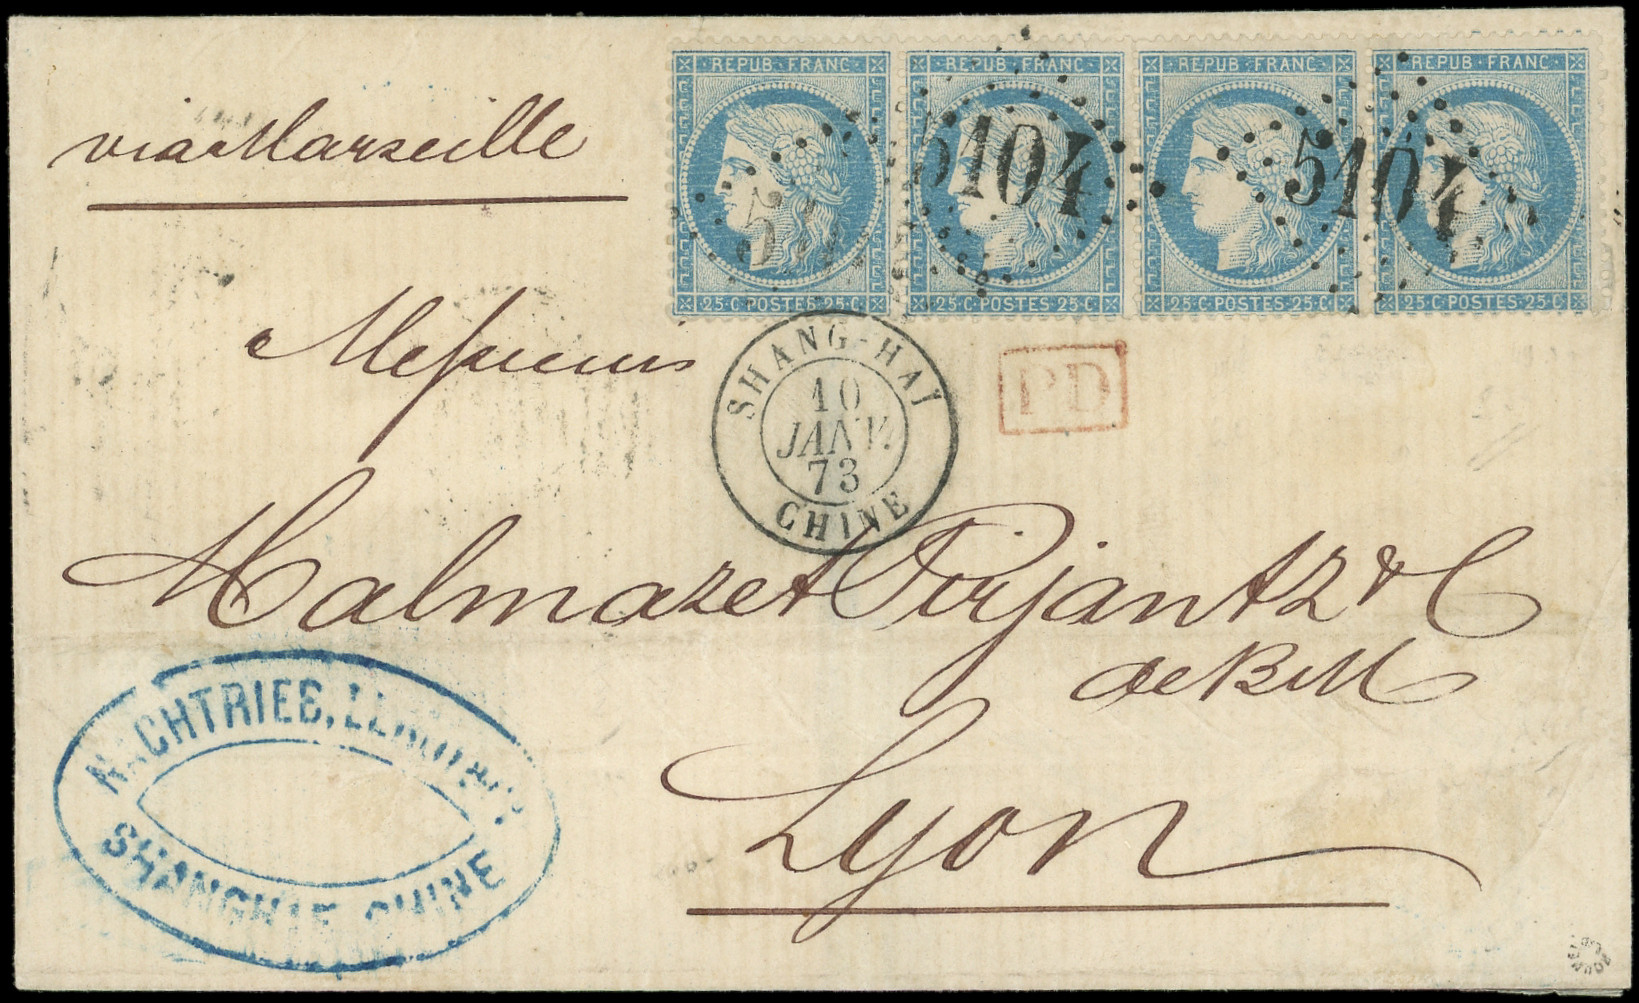 via Marseille
REPUB · FRANC REPUB · FRANC REPUB · FRANC REPUB · FRANC
5104 5104
25 C POSTES 25 C 25 C POSTES 25 C 25 C POSTES 25 C 25 C POSTES 25 C
Messieurs
SHANG-HAI
10
JANV.
73
CHINE
PD
Malmazet Pirjantz & C
de BM
Lyon
NACHTRIEB, LEROY
SHANGHAE CHINE